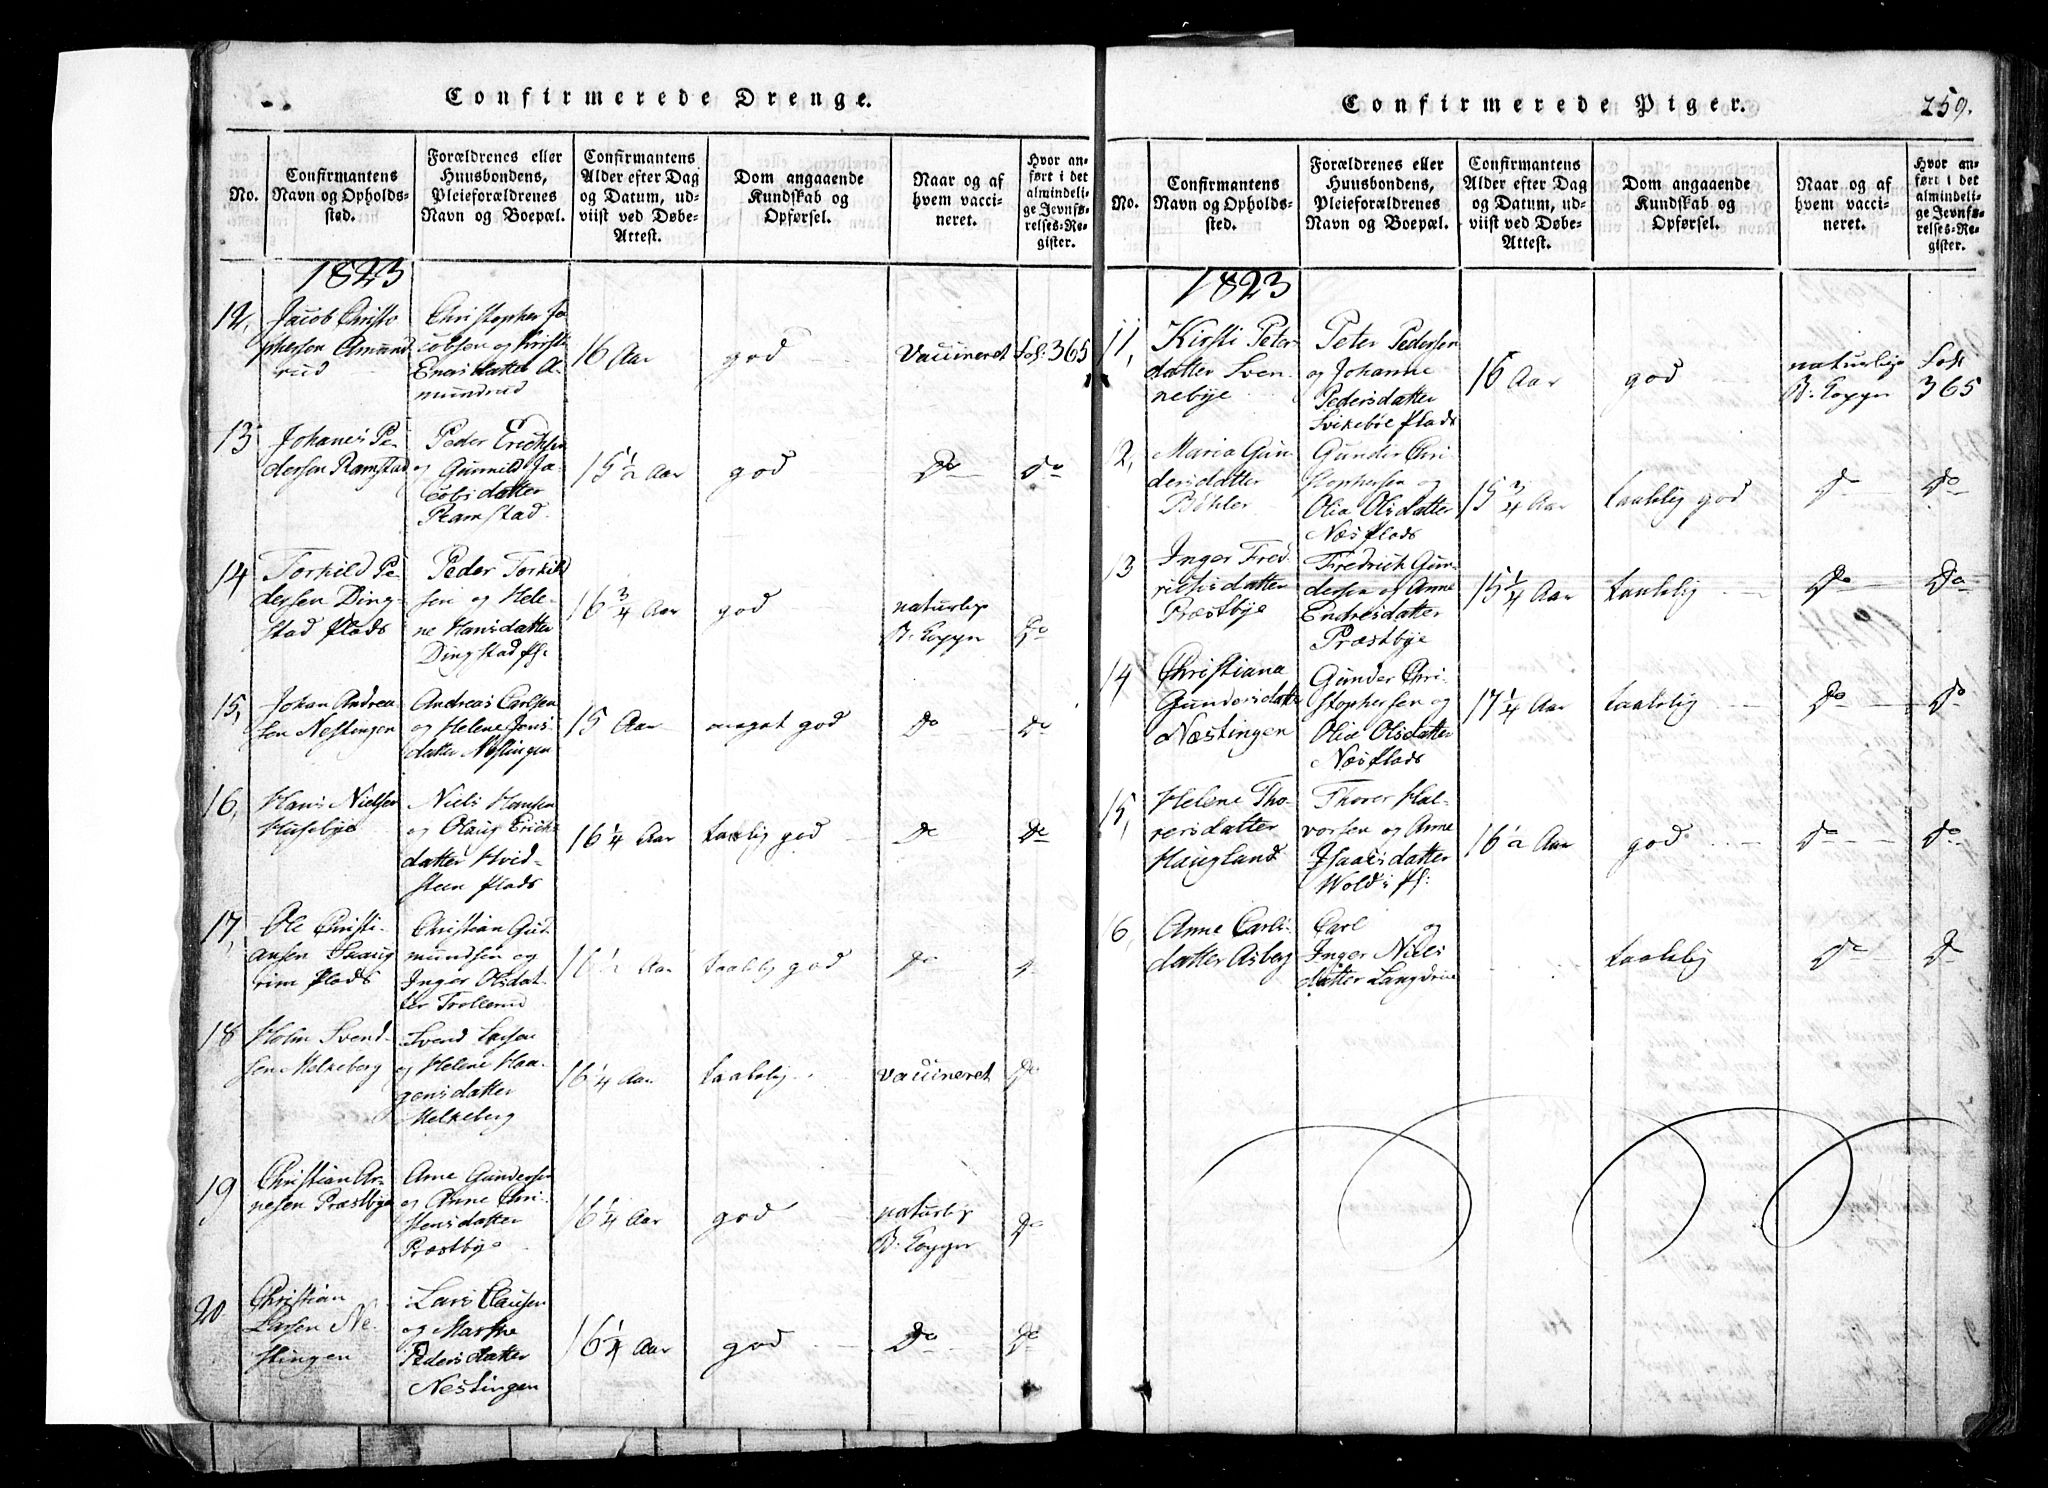 Confirmerede Drenge.
No.
Confirmantens
Navn og Opholds-
sted.
Forældrenes eller
Huusbondens,
Pleieforældrenes
Navn og Boepæl.
Confirmantens
Alder efter Dag
og Datum, ud-
viist ved Døbe-
Attest.
Dom angaaende
Kundskab og
Opførsel.
Naar og af
hvem vacci-
neret.
Hvor an-
ført i det
almindeli-
ge Jevnfø-
relses-Re-
gister.
1823
12,
Jacob Christo
phersen Amund
rud
Christopher Ja-
cobsen og Kirsti
Enersdatter A-
mundrud
16 Aar
god
Vaccineret
Fol: 365
13
Johanes Pe-
dersen Ramstad
Peder Erichsen
og Gunnild Ja-
cobsdatter
Ramstad.
15 1/2 Aar
god
Do
Do
14
Torkild Pe-
dersen Ding-
stad Plads
Peder Torkild
sen og Hele-
ne Hansdatter
Dingstad Pl:
16 3/4 Aar
god
naturlige
B. Kopper
Do
15,
Johan Andrea
sen Nestingen
Andreas Carlsen
og Helene Jens
datter Nestingen
15 Aar
meget god
Do
Do
16,
Hans Nielsen
Husebye
Niels Hansen
og Olaug Erich-
datter Hvid-
steen Plads
16 1/4 Aar
taalelig god
Do
Do
17,
Ole Christi-
ansen Skaug
rim Plads
Christian Gud
mundsen og
Inger Olsdat-
ter Trollerud
16 1/2 Aar
taalelig god
Do
Do
18
Holm Svend-
sen Melkeberg
Svend Larsen
og Helene Haa-
gensdatter
Melkeberg
16 1/4 Aar
taalelig
Vaccineret
Do
19
Christian Ar-
nesen Præstbye
Arne Gundersen
og Anne Chri-
stensdatter
Præstbye
16 1/4 Aar
god
naturlige
B. Kopper
Do
20
Christian
Larsen Ne-
stingen
Lars Clausen
og Marthe
Pedersdatter
Nestingen
16 1/4 Aar
god
Do
Do
Confirmerede Piger.
259.
No.
Confirmantens
Navn og Opholds-
sted.
Forældrenes eller
Huusbondens,
Pleieforældrenes
Navn og Boepæl.
Confirmantens
Alder efter Dag
og Datum, ud-
viist ved Døbe-
Attest.
Dom angaaende
Kundskab og
Opførsel.
Naar og af
hvem vacci-
neret.
Hvor an-
ført i det
almindeli-
ge Jevnfø-
relses-Re-
gister.
1823
11,
Kirsti Peter-
datter Sven-
nebye
Peter Pedersen
og Johanne
Pedersdatter
Svikebøe Plads
16 Aar
god
naturlige
B. Kopper
Fol
365
12,
Maria Gun
dersdatter
Bøhler
Gunder Chri-
stophersen og
Olia Olsdatter
Næs Plads
15 3/4 Aar
taalelig god
Do
Do
13
Inger Fred-
richsdatter
Præstbye
Fredrich Gun-
dersen og Anne
Endresdatter
Præstbye
15 1/4 Aar
taalelig
Do
Do
14
Christiana
Gundersdatter
Næstingen
Gunder Chri-
stophersen og
Olia Olsdatter
Næs Plads
17 1/4 Aar
taalelig
Do
Do
15,
Helene Tho-
rersdatter
Haugland
Thorer Hal-
vorsen og Anne
Isaacsdatter
Wold's Pl:
16 1/2 Aar
god
Do
Do
16,
Anne Carls-
datter Asberg
Carl og
Inger Niels
datter
taalelig
Do
Do